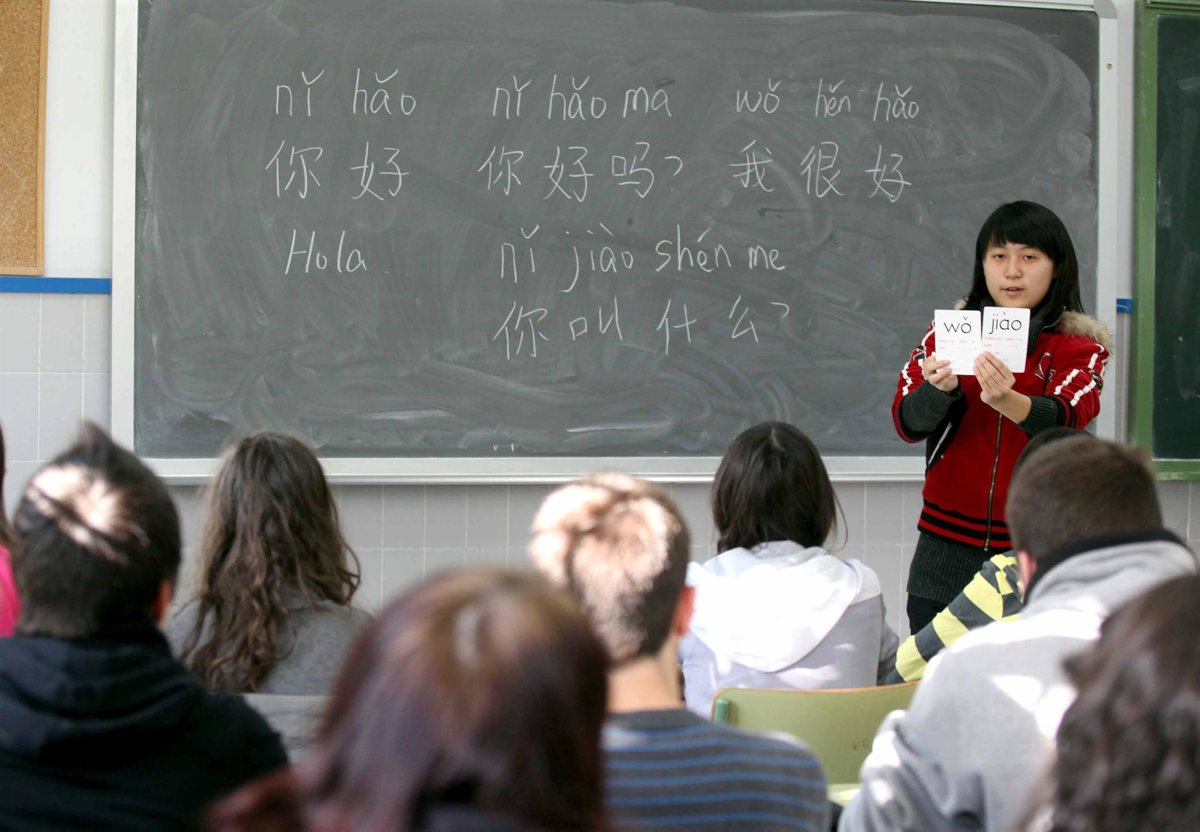 nǐ hǎo nǐ hǎo ma wǒ hěn hǎo
你好 你好吗? 我很好
Hola.
nǐ jiào shén me
你叫什么?
wǒ jiào